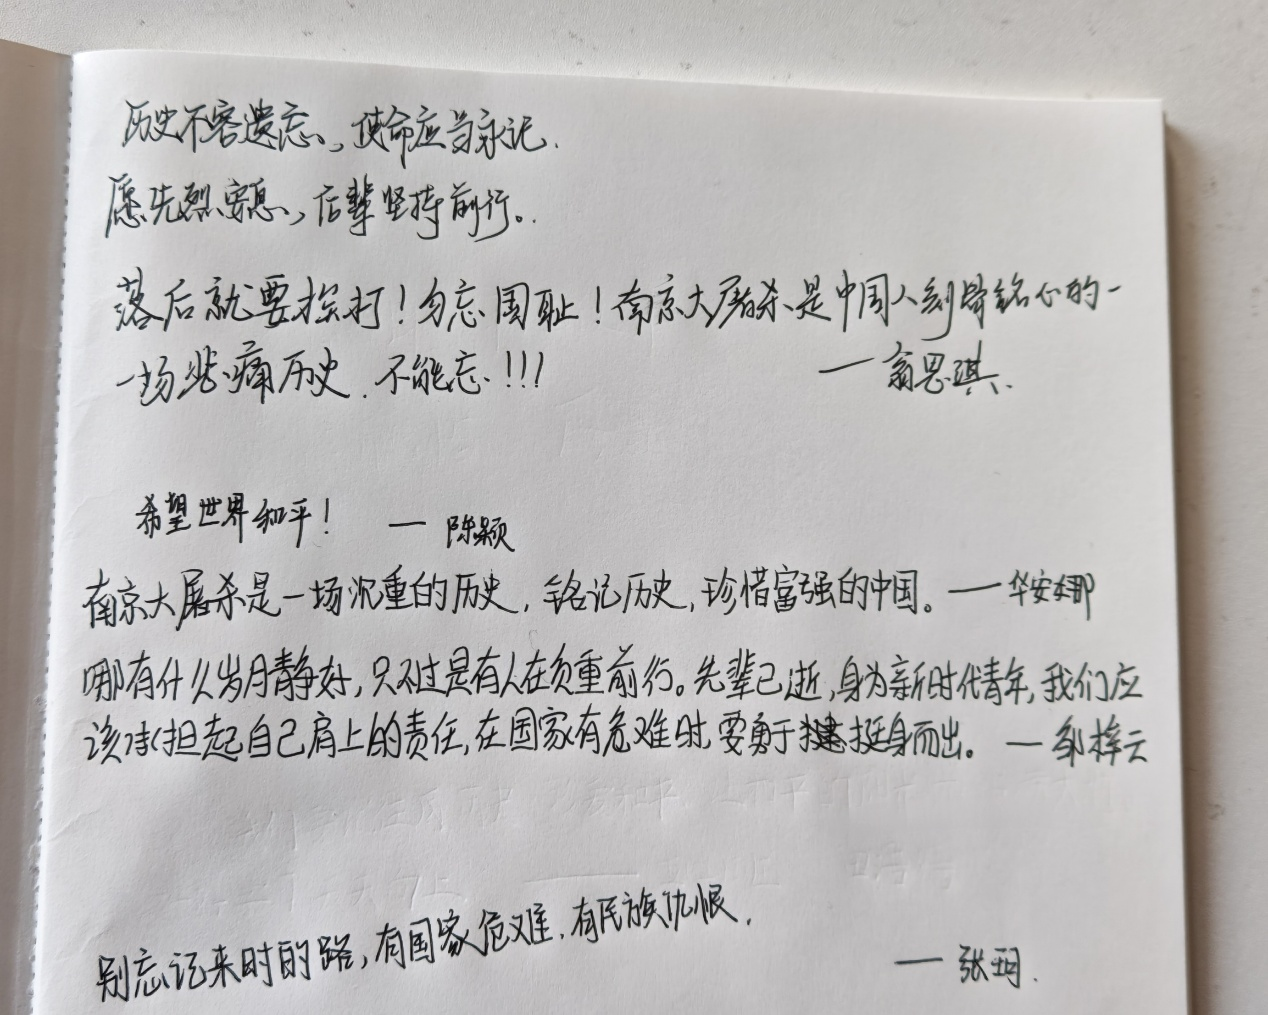 历史不容遗忘，使命应当永记.
愿先烈安息，后辈坚持前行。
落后就要挨打！勿忘国耻！南京大屠杀是中国人刻骨铭心的一
一场悲痛历史.不能忘!!!
—翁思琪.
希望世界和平！ — 陈颖
南京大屠杀是一场沉重的历史，铭记历史，珍惜富强的中国。—华安娜
哪有什么岁月静好，只不过是有人在负重前行。先辈已逝，身为新时代青年，我们应
该担起自己肩上的责任，在国家有危难时，要勇于挺身而出。—邹梓云
别忘记来时的路，有国家危难.有民族仇恨.
— 张玥.